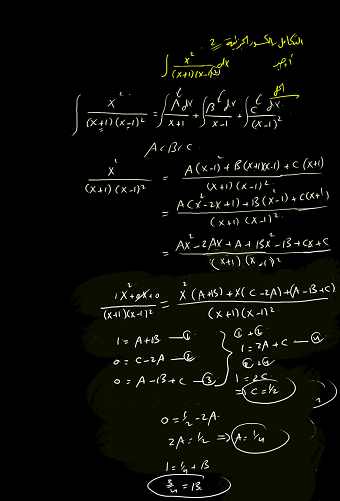 التكامل بالكسور الجزئية 2
أوجد ∫ x² / (x+1)(x-1)² dx
∫ x² / (x+1)(x-1)² = ∫ A dx / x+1 + ∫ B dx / x-1 + ∫ C dx / (x-1)²
A, B, C
x² / (x+1)(x-1)² = A(x-1)² + B(x+1)(x-1) + C(x+1) / (x+1)(x-1)²
= A(x²-2x+1) + B(x²-1) + C(x+1) / (x+1)(x-1)²
= Ax²-2Ax+A+Bx²-B+Cx+C / (x+1)(x-1)²
1x²+0x+0 / (x+1)(x-1)² = x²(A+B)+x(C-2A)+(A-B+C) / (x+1)(x-1)²
1 = A+B — ①
0 = C-2A — ②
0 = A-B+C — ③
① + ③
1 = 2A + C — ④
② + ④
1 = 2C
⇒ C = 1/2
0 = 1/2 - 2A
2A = 1/2 ⇒ A = 1/4
1 = 1/4 + B
3/4 = B